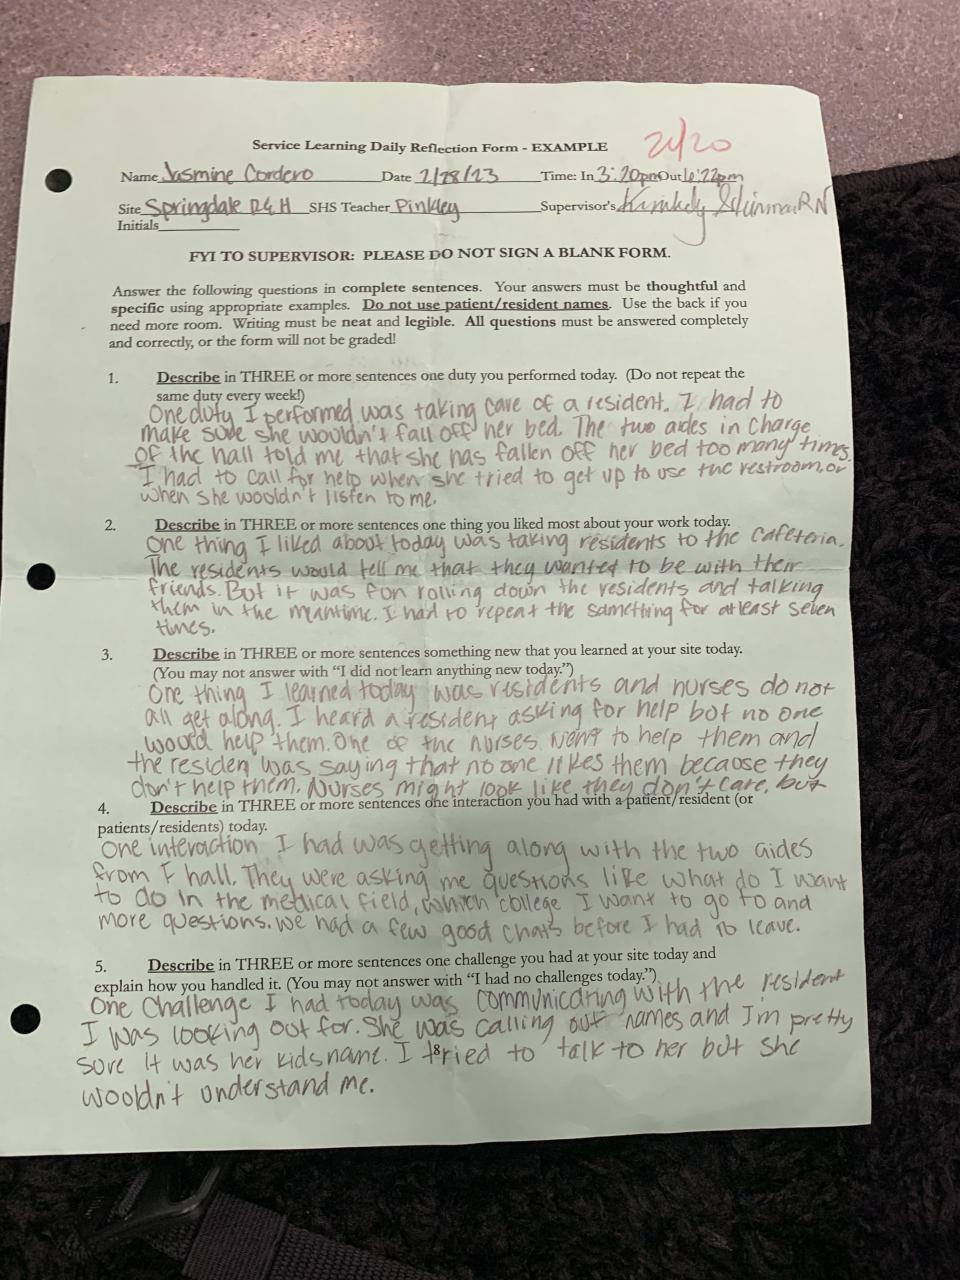 Service Learning Daily Reflection Form - EXAMPLE
21/20
Name Jasmine Cordero Date 2/28/23 Time: In 3:20pm Out 6:22pm
Site Springdale R&H SHS Teacher Pinkley Supervisor's RN
Initials
FYI TO SUPERVISOR: PLEASE DO NOT SIGN A BLANK FORM.
Answer the following questions in complete sentences. Your answers must be thoughtful and
specific using appropriate examples. Do not use patient/resident names. Use the back if you
need more room. Writing must be neat and legible. All questions must be answered completely
and correctly, or the form will not be graded!
1. Describe in THREE or more sentences one duty you performed today. (Do not repeat the
same duty every week!)
One duty I performed was taking care of a resident. I had to
make sure she wouldn't fall off her bed. The two aides in charge
of the hall told me that she has fallen off her bed too many times.
I had to call for help when she tried to get up to use the restroom, or
when she wouldn't listen to me.
2. Describe in THREE or more sentences one thing you liked most about your work today.
One thing I liked about today was taking residents to the cafeteria.
The residents would tell me that they wanted to be with their
friends. But it was fun rolling down the residents and talking
them in the meantime. I had to repeat the samething for atleast seven
times.
3. Describe in THREE or more sentences something new that you learned at your site today.
(You may not answer with "I did not learn anything new today.")
One thing I learned today was residents and nurses do not
all get along. I heard a resident asking for help but no one
would help them. One of the nurses went to help them and
the residen was saying that no one likes them because they
don't help them. Nurses might look like they don't care, but
4. Describe in THREE or more sentences one interaction you had with a patient/resident (or
patients/residents) today.
One interaction I had was getting along with the two aides
from F hall. They were asking me questions like what do I want
to do in the medical field, which college I want to go to and
more questions. We had a few good chats before I had to leave.
5. Describe in THREE or more sentences one challenge you had at your site today and
explain how you handled it. (You may not answer with "I had no challenges today.")
One challenge I had today was communicating with the resident
I was looking out for. She was calling out names and I'm pretty
sure it was her kids name. I tried to talk to her but she
wouldn't understand me.
8